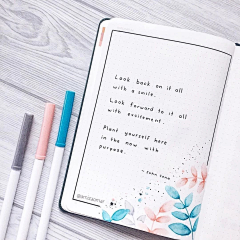 Look back on it all
with a smile.
Look forward to it all
with excitement.
Plant yourself here
in the now with
purpose.